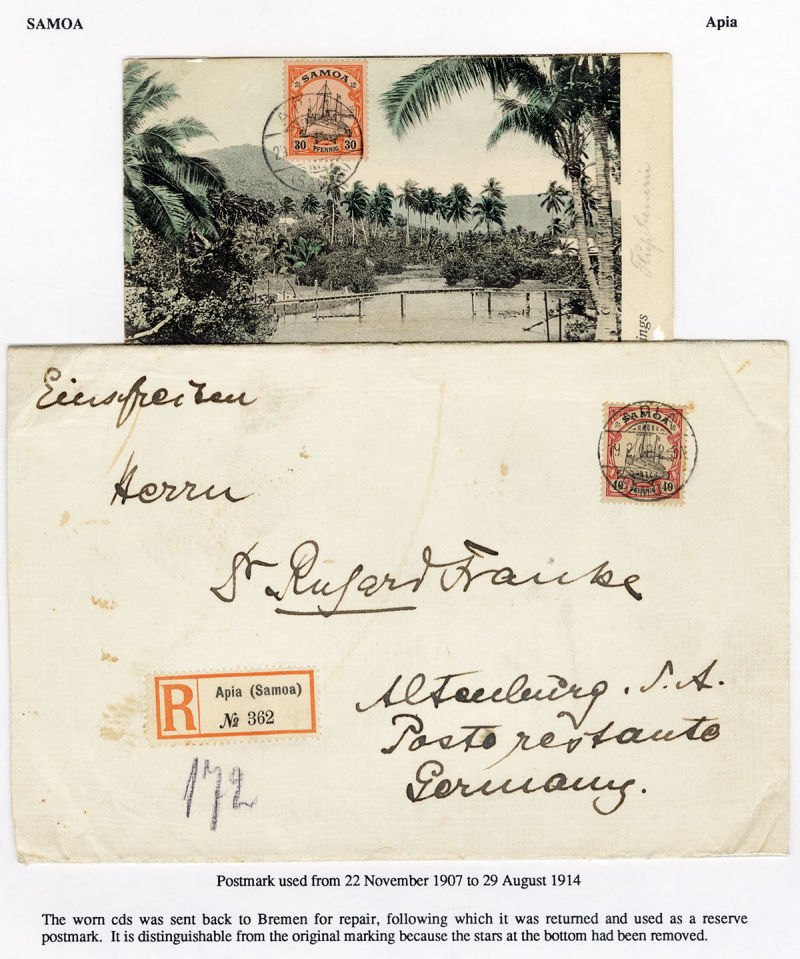 SAMOA
Apia
SAMOA
30 30
PFENNIG
ings
Einschreiben
SAMOA
40 40
PFENNIG
Herrn
Dr Rugard Franke
R
Apia (Samoa)
№ 362
Altenburg. S. A.
Poste restante
Germany.
172
Postmark used from 22 November 1907 to 29 August 1914
The worn cds was sent back to Bremen for repair, following which it was returned and used as a reserve
postmark. It is distinguishable from the original marking because the stars at the bottom had been removed.